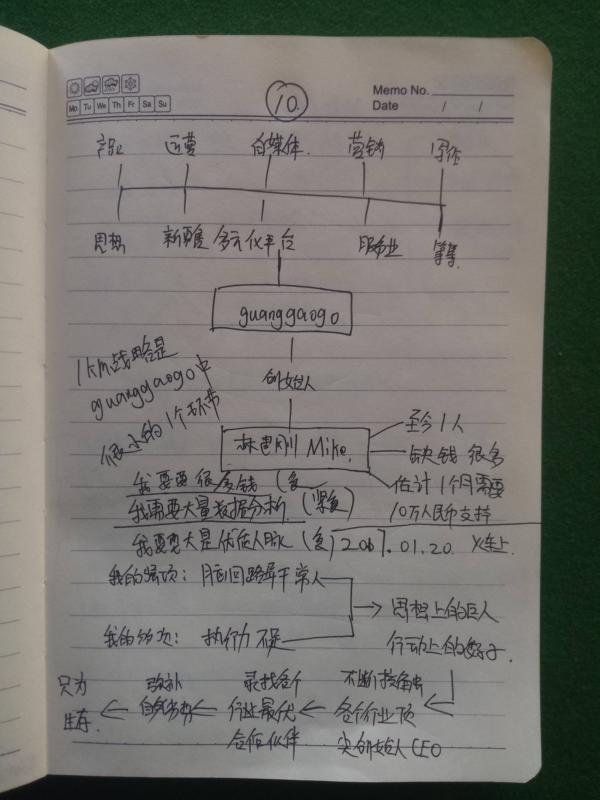 10.
Memo No.
Mo Tu We Th Fr Sa Su
Date / /
运营 自媒体. 营销 写作
思想 多元化平台 服务业 等等.
guanggaogo
创始人
1km战略是
guanggaogo中
很小的1个环节
林建刚 Mike.
至今1人
缺钱 很多
估计1个月需要
10万人民币支持
我需要很多钱 (急
我需要大量数据分析. (紧急)
我需要大量优质人脉 (急) 2017.01.20. 火车上
我的强项: 脑回路异于常人
我的弱项: 执行力不足
思想上的巨人
行动上的矮子.
不断接触出
各个行业顶
尖创始人CEO
寻找各个
行业最优
合作伙伴
弥补
自身劣势
只为
生存.